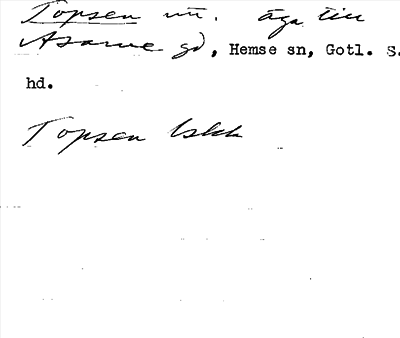 Topsen äga till
Asarve gd, Hemse sn, Gotl. S.
hd.
Topsen